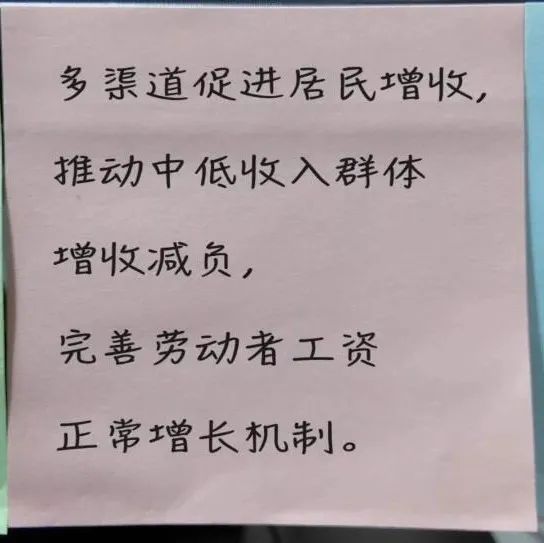 多渠道促进居民增收,
推动中低收入群体
增收减负,
完善劳动者工资
正常增长机制。